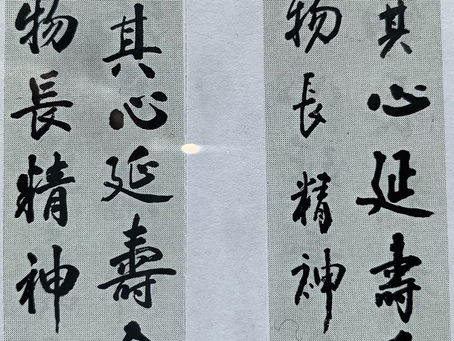 其心延壽
物長精神
其心延壽
物長精神